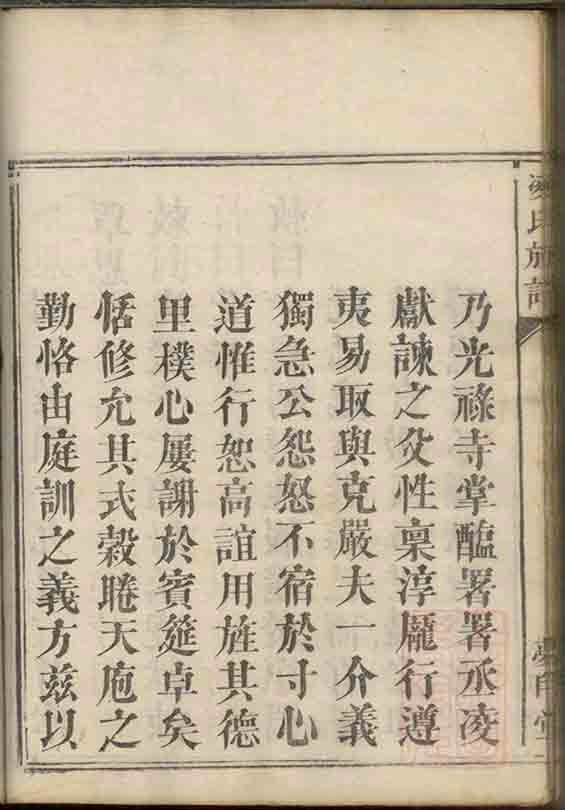 凌氏族譜
乃光祿寺掌醢署署丞凌
獻諫之父性稟淳龐行遵
夷易取與克嚴夫一介義
獨急公怨怒不宿於寸心
道惟行恕高誼用旌其德
里樸心屢謝於賓筵卓矣
恬修允其式穀睠天庖之
勤恪由庭訓之義方茲以